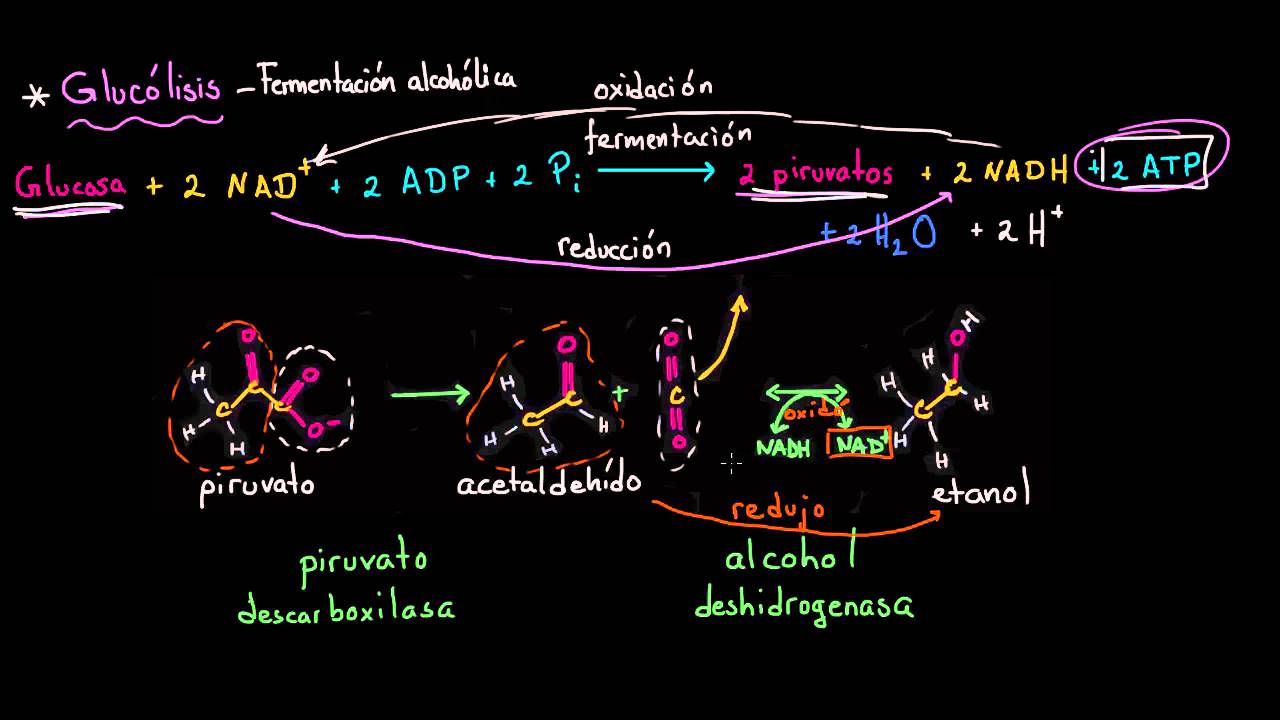 * Glucólisis - Fermentación alcohólica
oxidación
fermentación
Glucosa + 2 NAD⁺ + 2 ADP + 2 Pᵢ → 2 piruvatos + 2 NADH + 2 ATP
+ 2 H₂O + 2 H⁺
reducción
H H H C C O C O O⁻
→
H H H C C O H
+
O C O
oxidó
NADH NAD⁺
H H H C C H H O H
piruvato
acetaldehído
etanol
redujo
piruvato
descarboxilasa
alcohol
deshidrogenasa